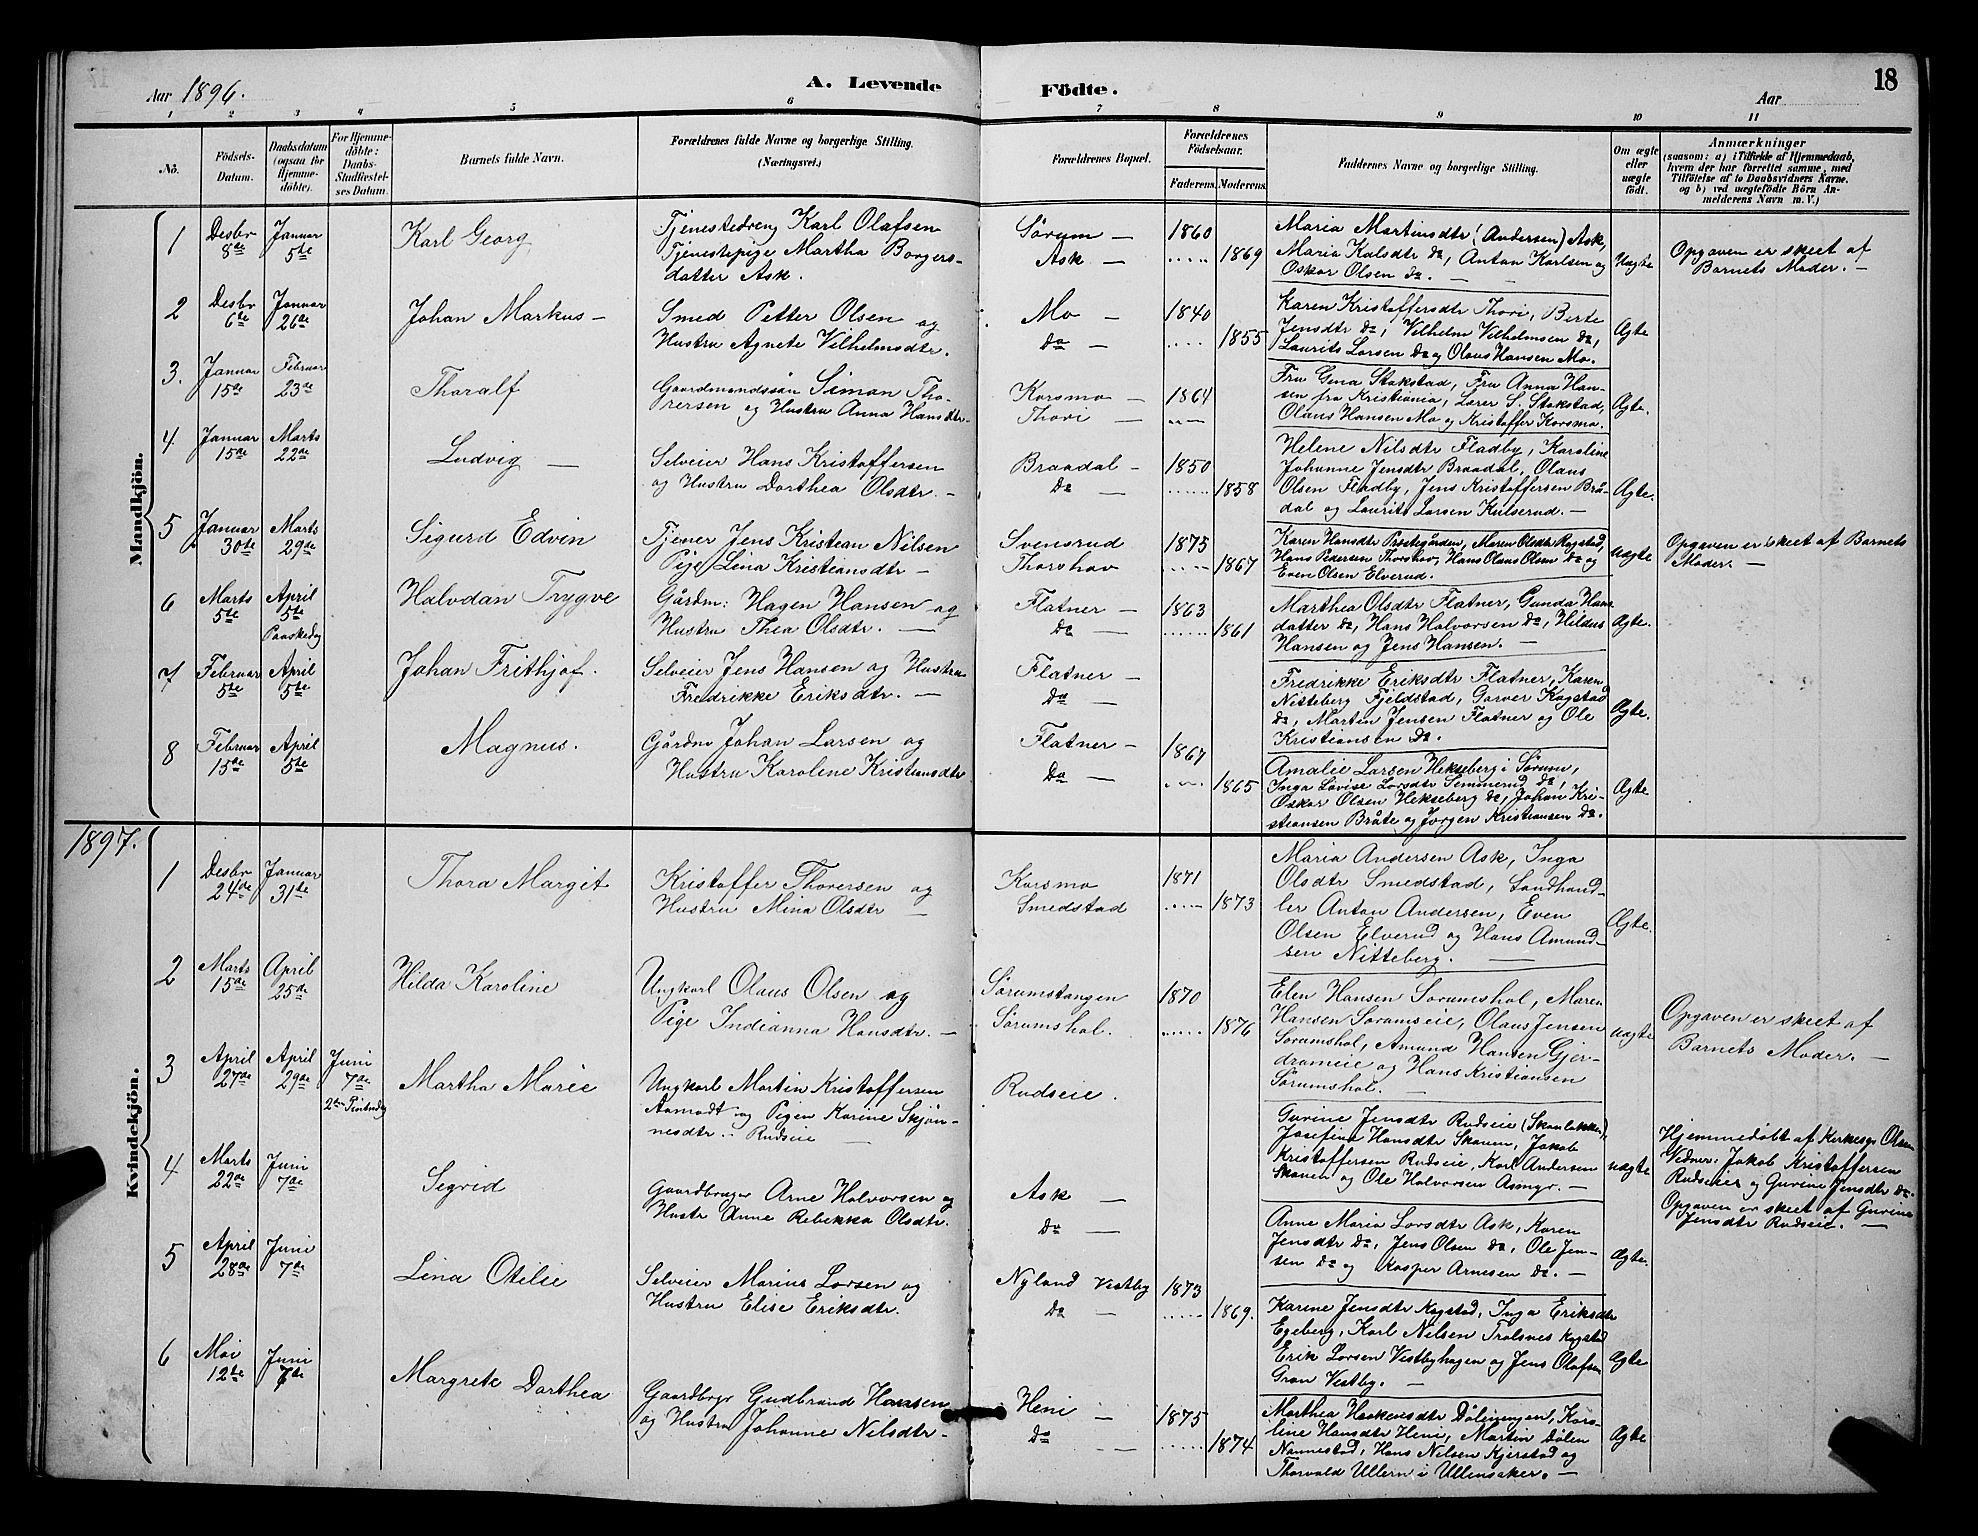 Aar 1896.
A. Levende Födte.
Aar
18
1 2 3 4 5 6 7 8 9 10 11
No.
Födsels-Datum.
Daabsdatum (ogsaa for Hjemme-döbte).
For Hjemme-döbte: Daabs-Stadfæstel-ses Datum.
Barnets fulde Navn.
Forældrenes fulde Navne og borgerlige Stilling. (Næringsvei.)
Forældrenes Bopæl.
Forældrenes Födselsaar.
Faderens. Moderens.
Faddernes Navne og borgerlige Stilling.
Om ægte eller uægte födt.
Anmærkninger
(saasom: a) i Tilfælde af Hjemmedaab, hvem der har forrettet samme, med Tilföielse af to Daabsvidners Navne, og b) ved uægtefödte Börn An-melderens Navn m. V.)
Mandkjön.
1 Desbr 8de Januar 5te Karl Georg
Tjenestedreng Karl Olafsen
Tjenestepige Martha Borgers-
datter Ask.
Sørum —
Ask —
1860
1869
Maria Martinsdtr (Andersen) Ask,
Maria Karlsdtr do, Anton Karlsen og
Oskar Olsen do. —
Uægte
Opgaven er skeet af
Barnets Moder. —
2 Desbr 6te Januar 26de Johan Markus —
Smed Petter Olsen og
Hustru Agnete Vilhelmsdtr.
Mo —
do —
1840
1855
Karen Kristoffersdtr Thori, Berte
Jensdtr do, Vilhelm Vilhelmsen do,
Laurits Larsen do og Olaus Hansen Mo.
Ægte
3. Januar 15de Februar 23de Thoralf
Gaardmandssøn Simon Tho-
rersen og Hustru Anna Hansdtr.
Korsmo —
Thori —
1864
Fru Gina Stokstad, Fru Anna Han-
sen fra Kristiania, Lærer S. Stokstad,
Olaus Hansen Mo og Kristoffer Korsmo.
Ægte.
4 Januar 15de Marts 22de Ludvig —
Selveier Hans Kristoffersen
og Hustru Dorthea Olsdtr. —
Braadal —
Do —
1850
1858
Helene Nilsdtr Fladby, Karoline
Johanne Jensdtr Braadal, Olaus
Olsen Fladby, Jens Kristoffersen Brå-
dal og Laurits Larsen Kulserud. —
Ægte.
5 Januar 30te Marts 29de Sigurd Edvin
Tjener Jens Kristian Nilsen
Pige Lina Kristiansdtr —
Svensrud
Thorshov
1875
1867
Karen Hansdtr Prestegården, Maren Olsdtr Kogstad,
Hans Pedersen Thorshov, Hans Olaus Olsen Do og
Even Olsen Elverud.
Uægte
Opgaven er skeet af Barnets
Moder. —
6 Marts 5te April 5te Paaskedag Halvdan Trygve
Gårdm: Hagen Hansen og
Hustru Thea Olsdtr. —
Flatner —
Do —
1863
1861
Marthea Olsdtr Flatner, Gunda Hans
datter do, Hans Halvorsen do, Hildus
Hansen og Jens Hansen. —
Ægte.
7 Februar 5te April 5te Johan Frithjof.
Selveier Jens Hansen og Hustru
Fredrikke Eriksdtr. —
Flatner —
Do —
Fredrikke Eriksdtr Flatner, Karen
Nitteberg Fjeldstad, Garver Kogstad
do, Martin Jensen Flatner og Ole
Kristiansen Do.
Ægte.
8 Februar 15de April 5te Magnus.
Gårdm Johan Larsen og
Hustru Karoline Kristiansdtr
Flatner —
Do —
1867
1865
Amalie Larsen Hekseberg i Sørum,
Inga Lovise Larsdtr Semmerud do,
Oskar Olsen Hekseberg do, Johan Kri-
stiansen Bråte og Jørgen Kristiansen Do.
Ægte.
1897.
Kvindekjön.
1 Desbr 24de Januar 31te Thora Margit
Kristoffer Thorersen og
Hustru Mina Olsdtr —
Korsmo
Smedstad
1871
1873
Maria Andersen Ask, Inga
Olsdtr Smedstad, Landhand-
ler Anton Andersen, Even
Olsen Elverud og Hans Amund-
sen Nitteberg. —
Ægte.
2 Marts 15de April 25de Hilda Karoline
Ungkarl Olaus Olsen og
Pige Indianna Hansdtr. —
Sørumstangen
Sørumshol.
1870
1876
Elen Hansen Sørumshol, Maren
Hansen Sørumseie, Olaus Jensen
Sørumshol, Amund Hansen Gjer-
drameie og Hans Kristiansen
Sørumshol.
Uægte
Opgaven er skeet af
Barnets Moder. —
3 April 27de April 29de Juni 7de 2den Pintsedag Martha Marie
Ungkarl Martin Kristoffersen
Aamodt og Pigen Karine Skjøn-
nesdtr. Rudseie —
Rudseie.
Gurine Jensdtr Rudseie (Skoulökken),
Josefine Hansdtr Skauen, Jakob
Kristoffersen Rudseie, Karl Andersen
Skauen og Ole Halvorsen Asmyr. —
Uægte
Hjemmedøbt af Kirkesgr Olsen
Vidner: Jakob Kristoffersen
Rudseie og Gurine Jensdtr Do.
Opgaven er skeet af Gurine
Jensdtr Rudseie. —
4 Marts 22de Juni 7de Sigrid
Gaardbruger Arne Halvorsen og
Hustr Anne Rebekka Olsdtr.
Ask —
Do —
Anne Maria Larsdtr Ask, Karen
Jensdtr do, Jens Olsen do, Ole Jen-
sen do og Kasper Arnesen do. —
Ægte.
5 April 28de Juni 7de Lina Otilie
Selveier Marius Larsen og
Hustru Elise Eriksdtr.
Nyland Vestby
Do —
1873
1869.
Karine Jensdtr Kogstad, Inga Eriksdtr
Egeberg, Karl Nilsen Trolsnes Kogstad
Erik Larsen Vestbyhagen og Jens Olafsen
Gran Vestby. —
Ægte
6 Mai 12te Juni 7de Margrete Dorthea
Gaardbrgr Gudbrand Hansen
og Hustru Johanne Nilsdtr —
Heni —
Do —
1875
1874
Marthea Haakensdtr Dölinengen, Karo-
line Hansdtr Heni, Martin Dölen
Nannestad, Hans Nilsen Kjerstad og
Thorvald Ullern i Ullensaker. —
Ægte